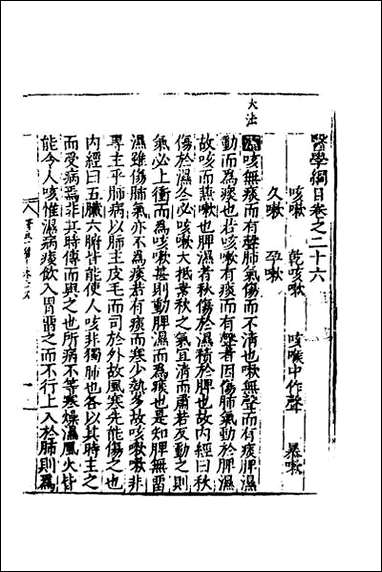 醫學綱目卷之二十六
咳嗽 乾咳嗽 咳喉中作聲 暴嗽
久嗽 孕嗽
大法
咳無痰而有聲肺氣傷而不清也嗽無聲而有痰脾濕
動而為痰也若咳嗽有痰而有聲者因傷肺氣動於脾濕
故咳而兼嗽也脾濕者秋傷於濕積於脾也故內經曰秋
傷於濕冬必咳嗽大抵素秋之氣宜清而肅若反動之則
氣必上衝而為咳嗽甚則動脾濕而為痰也是知脾無留
濕雖傷肺氣亦不為痰若有痰而寒少熱多故咳嗽嗽非
專主乎肺病以肺主皮毛而司於外故風寒先能傷之也
內經曰五臟六腑皆能使人咳非獨肺也各以其時主之
而受病焉非其時傳而與之也所病不等寒燥濕風火皆
能令人咳惟濕病痰飲入胃留之而不行上入於肺則為